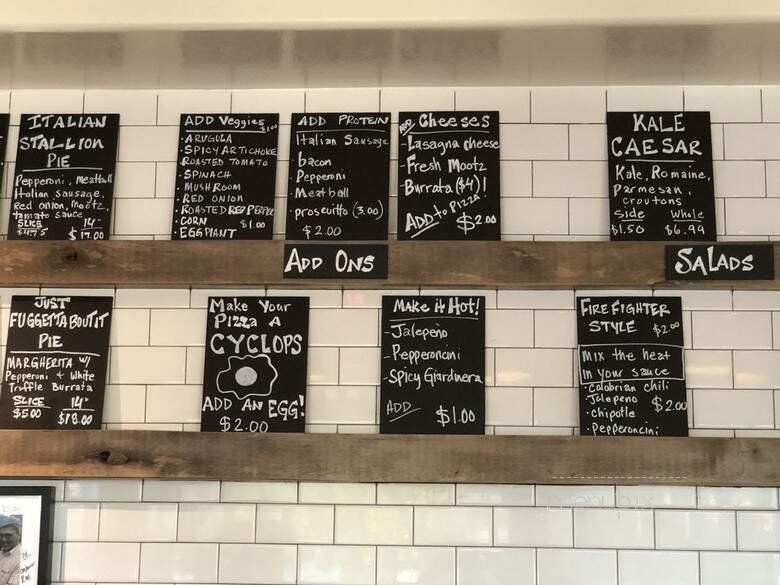 ITALIAN
STALLION
PIE
Pepperoni, Meatball
Italian sausage,
red onion, mootz,
tomato sauce
SLICE 14"
$4.75 $17.00
ADD Veggies $1.00
• ARUGULA
• SPICY ARTICHOKE
ROASTED TOMATO
• SPINACH
• MUSHROOM
• RED ONION
• ROASTED RED PEPPER
• CORN $1.00
• EGGPLANT
ADD PROTEIN
Italian Sausage
bacon
Pepperoni
Meatball
prosciutto (3.00)
$2.00
ADD Cheeses
- Lasagna cheese
- Fresh Mootz
- Burrata ($4)!
ADD to PIZZA
$2.00
KALE
CAESAR
Kale, Romaine,
Parmesan,
croutons
Side Whole
$1.50 $6.99
ADD ONS
SALADS
JUST
FUGGETTABOUTIT
PIE
MARGHERITA W/
Pepperoni & White
Truffle Burrata
SLICE 14"
$5.00 $18.00
Make Your
Pizza A
CYCLOPS
ADD AN EGG!
$2.00
Make it Hot!
- Jalepeño
- Pepperoncini
- Spicy Giardinera
ADD $1.00
FIREFIGHTER
STYLE $2.00
Mix the heat
in your sauce
• Calabrian chili
Jalepeno $2.00
• chipotle
• Pepperoncini